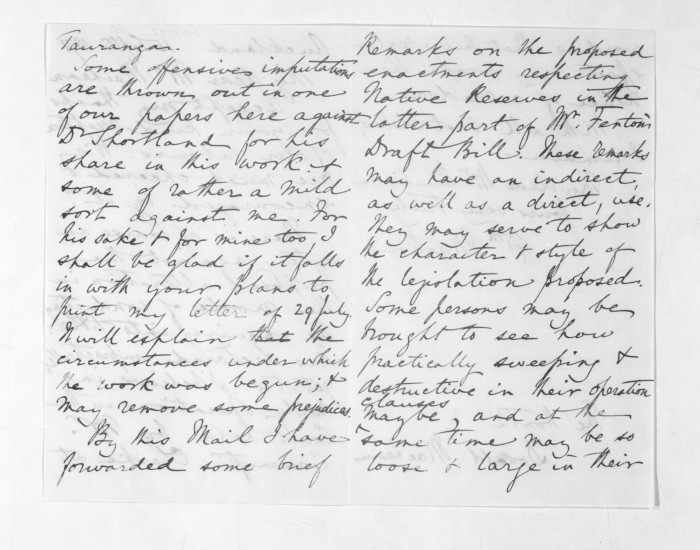 Tauranga.
Some offensive imputations
are thrown out in one
of our papers here against
Dr Shortland for his
share in this work: &
some of rather a mild
sort against me. For
his sake & for mine too, I
shall be glad if it falls
in with your plans to
print my letter of 29 July.
It will explain that the
circumstances under which
the work was begun; &
may remove some prejudices.
By this Mail I have
forwarded some brief
Remarks on the proposed
enactments respecting
Native Reserves in the
latter part of Mr. Fenton's
Draft Bill. These remarks
may have an indirect,
as well as a direct, use.
They may serve to show
the character & style of
the legislation proposed.
Some persons may be
brought to see how
practically sweeping &
destructive in their operation
clauses
may be, and at the
same time may be so
loose & large in their